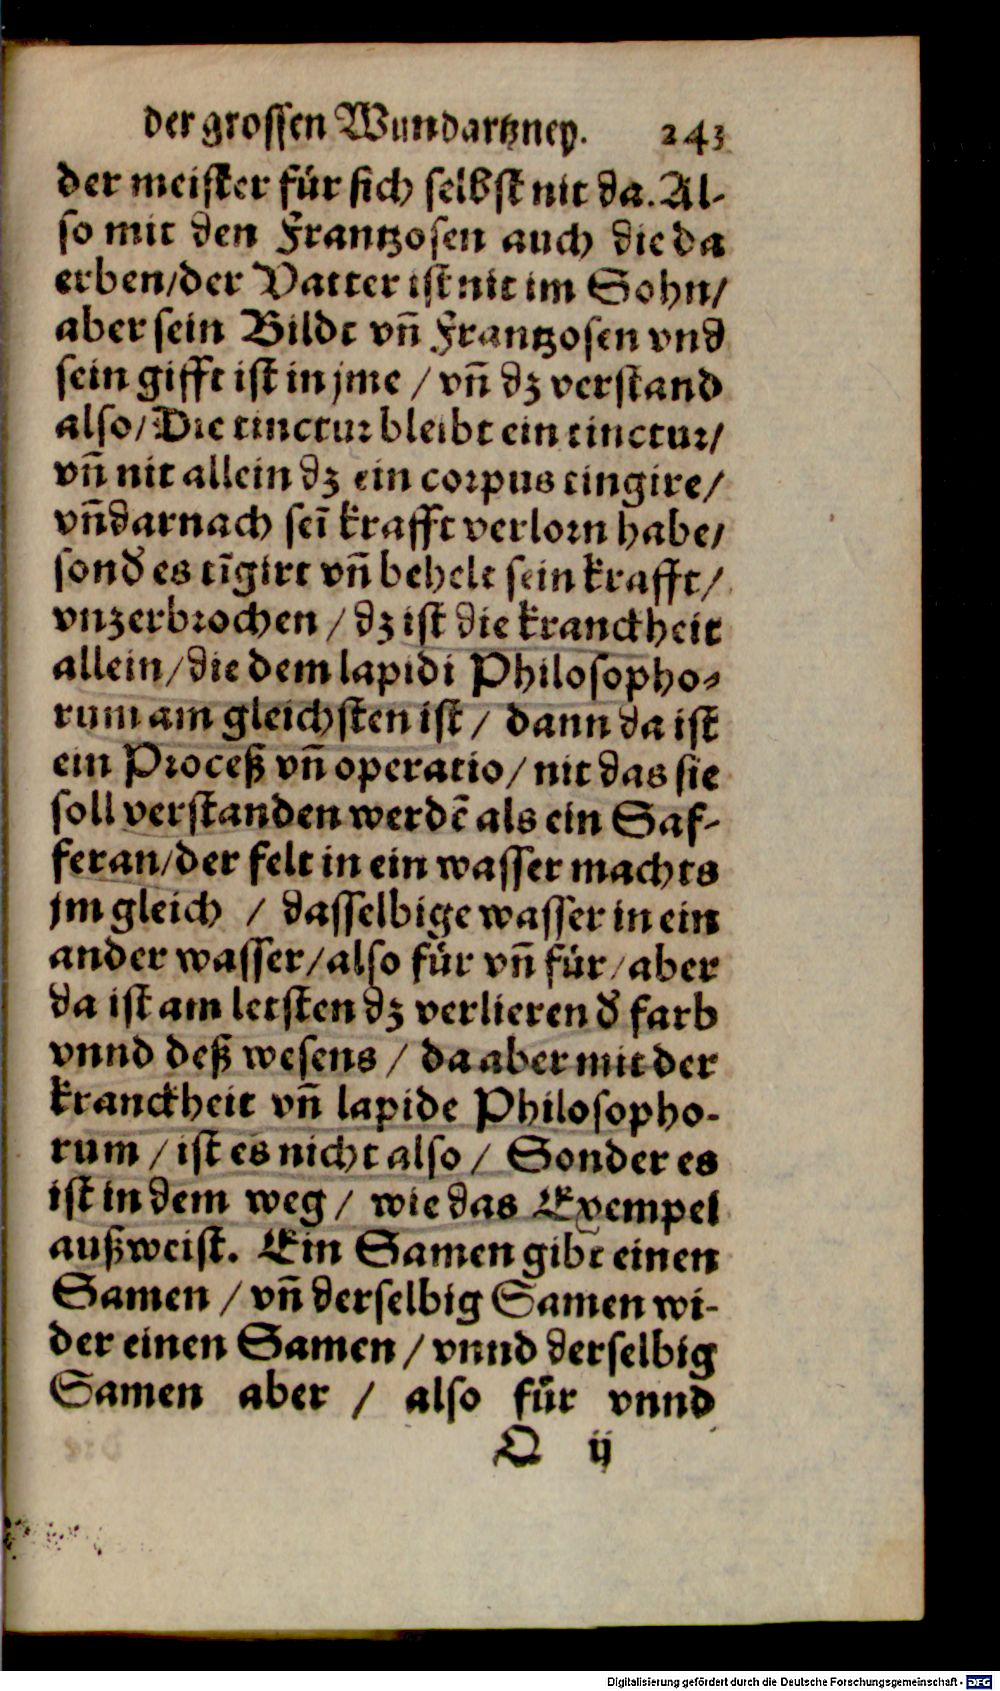 der grossen Wundartzney. 243
der meister für sich selbst nit da. Al-
so mit den Frantzosen auch die da
erben/der Vatter ist nit im Sohn/
aber sein Bildt vñ Frantzosen vnd
sein gifft ist in jme / vñ dz verstand
also/Die tinctur bleibt ein tinctur/
vñ nit allein dz ein corpus tingire/
vñdarnach seī krafft verlorn habe/
sond̕ es tīgirt vñ behelt sein krafft/
vnzerbrochen / dz ist die kranckheit
allein/die dem lapidi Philosopho-
rum am gleichsten ist / dann da ist
ein Proceß vñ operatio/ nit das sie
soll verstanden werdē als ein Saf-
feran/der felt in ein wasser machts
jm gleich / dasselbige wasser in ein
ander wasser/also für vñ für/aber
da ist am letsten dz verlieren d̕ farb
vnnd deß wesens / da aber mit der
kranckheit vñ lapide Philosopho-
rum / ist es nicht also / Sonder es
ist in dem weg / wie das Exempel
außweist. Ein Samen gibt einen
Samen / vñ derselbig Samen wi-
der einen Samen / vnnd derselbig
Samen aber / also für vnnd
Q ij
Digitalisierung gefördert durch die Deutsche Forschungsgemeinschaft - DFG